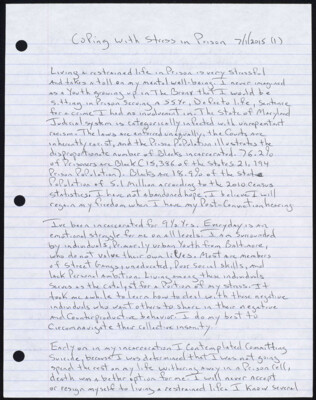 Coping with Stress in Prison 7/1/2015 (1)
Living a restrained life in Prison is very stressful
and takes a toll on my mental well-being. I never imagined
as a Youth growing up in The Bronx that I would be
sitting in Prison serving a 55 yr. Defacto life, Sentence
for a crime I had no involvement in. The State of Maryland
Judicial system is categorically infected with unimportant
racism. The laws are enforced unequally, the Courts are
inherently racist, and the Prison Population illustrates the
disproportionate number of Blacks incarcerated. 76.2%
of Prisoners are Black (15,386 of the states 21,194
Prison Population). Blacks are 18.9% of the state
Population of 5.1 Million according to the 2010 census
statistics. I have not abandoned hope. I believe I will
regain my freedom when I have my Post-Conviction hearing
I've been incarcerated for 9½ Yrs. Everyday is an
emotional struggle for me on all levels. I am surrounded
by individuals, Primarily urban Youth from Baltimore,
who do not value their own lives. Most are members
of Street Gangs; uneducated, Poor Social skills, and
lack Personal ambition. Living among these individuals
seems as the catalyst for a Portion of my stress. It
took me awhile to learn how to deal with those negative
individuals who want others to share in their negative
and Counterproductive behavior. I do my best to
Circumnavigate their collective insanity.
Early on in my incarceration I Contemplated Committing
Suicide, because I was determined that I was not going
spend the rest of my life withering away in a Prison cell,
death was a better option for me. I will never accept
or resign myself to living a restrained life. I Know several